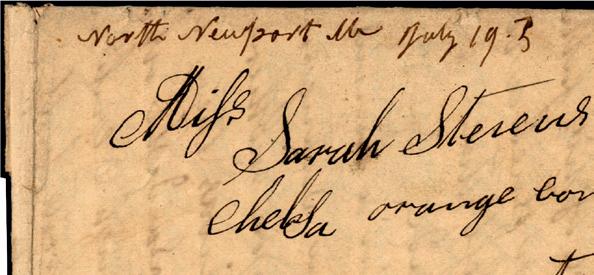 North Newport Me July 19.5
Miss
Sarah Stevens
Chelsa orange